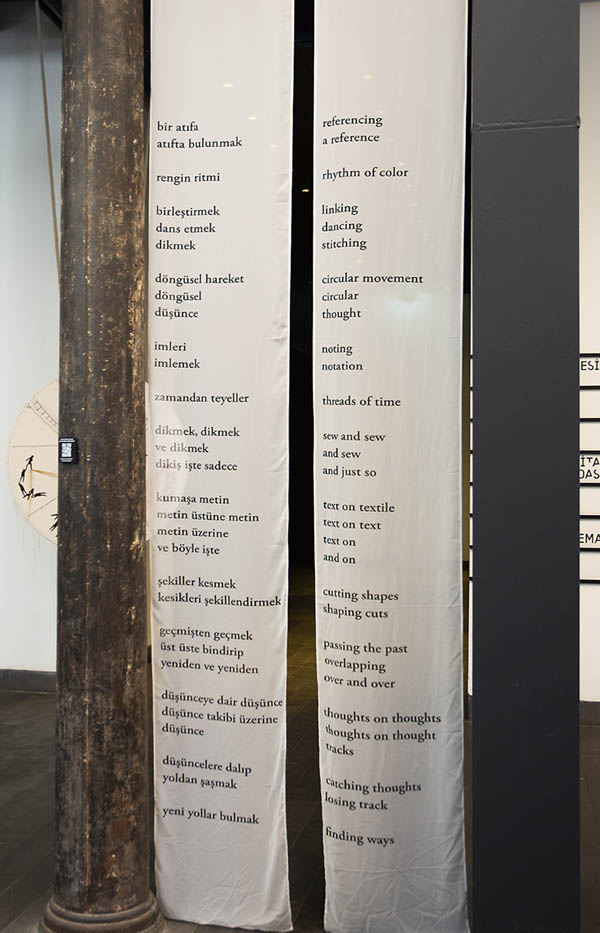 bir atıfa
atıfta bulunmak
rengin ritmi
birleştirmek
dans etmek
dikmek
döngüsel hareket
döngüsel
düşünce
imleri
imlemek
zamandan teyeller
dikmek, dikmek
ve dikmek
dikiş işte sadece
kumaşa metin
metin üstüne metin
metin üzerine
ve böyle işte
şekiller kesmek
kesikleri şekillendirmek
geçmişten geçmek
üst üste bindirip
yeniden ve yeniden
düşünceye dair düşünce
düşünce takibi üzerine
düşünce
düşüncelere dalıp
yoldan şaşmak
yeni yollar bulmak
referencing
a reference
rhythm of color
linking
dancing
stitching
circular movement
circular
thought
noting
notation
threads of time
sew and sew
and sew
and just so
text on textile
text on text
text on
and on
cutting shapes
shaping cuts
passing the past
overlapping
over and over
thoughts on thoughts
thoughts on thought
tracks
catching thoughts
losing track
finding ways
ESİ
İTA
DAS
EMA